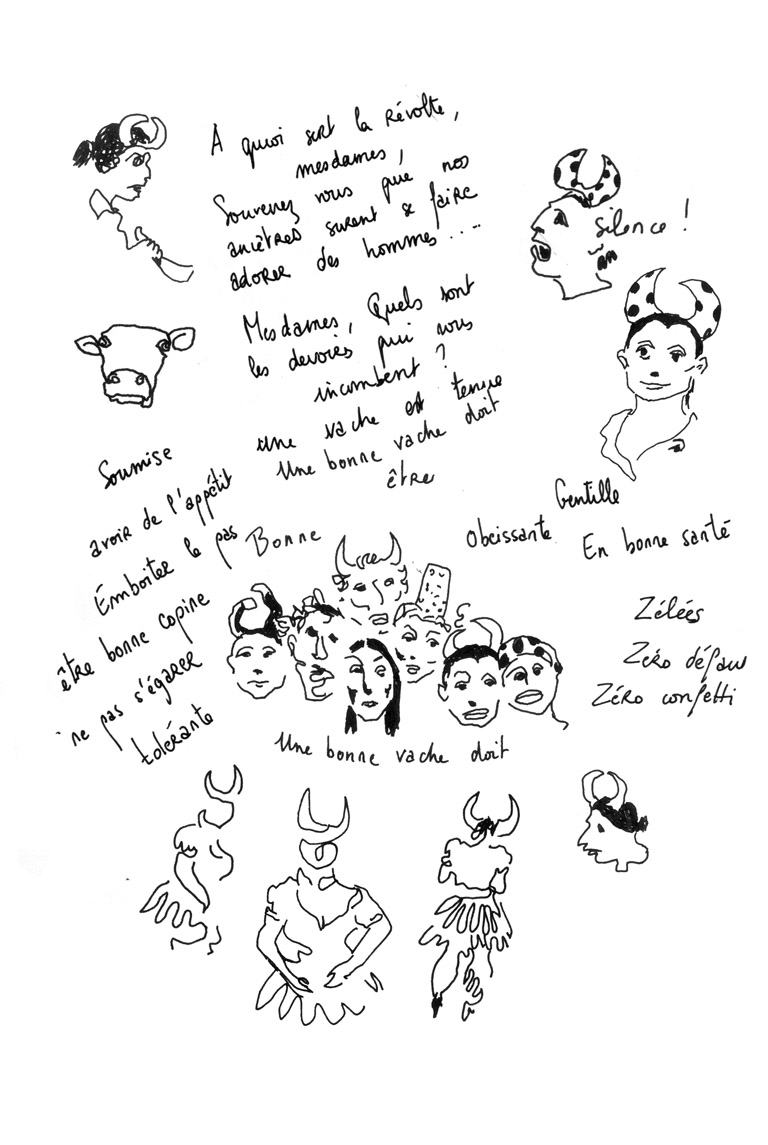 A quoi sert la Révolte,
mesdames,
Souvenez vous que nos
ancêtres surent se faire
adorer des hommes.....
silence !
Mesdames, Quels sont
les devoirs qui nous
incombent ?
une vache est tenue
Une bonne vache doit
être
Soumise
avoir de l'appétit
Emboiter le pas
être bonne copine
ne pas s'égarer
tolérante
Bonne
Obeissante
Gentille
En bonne santé
Zélées
Zéro défaut
Zéro confetti
Une bonne vache doit